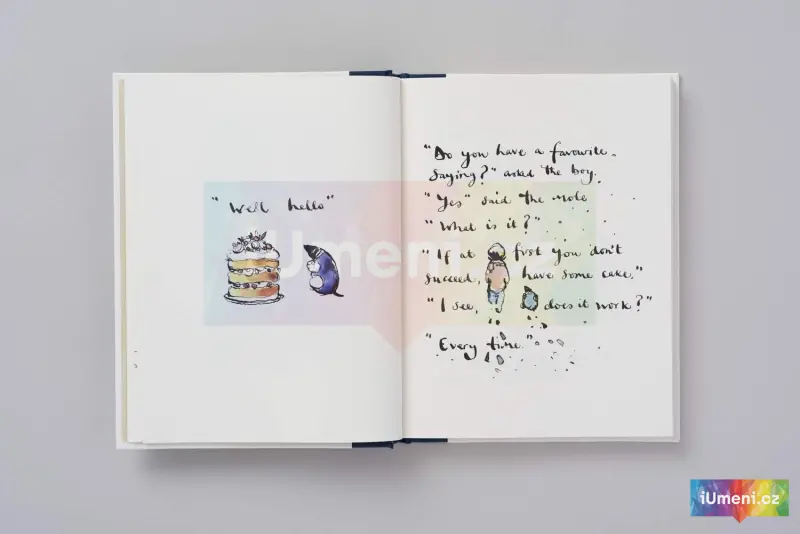 "Well hello"
"Do you have a favourite
saying?" asked the boy.
"Yes" said the mole
"What is it?"
"If at first you don't
succeed, have some cake."
"I see, does it work?"
"Every time."
iUmeni.cz
iUmeni.cz